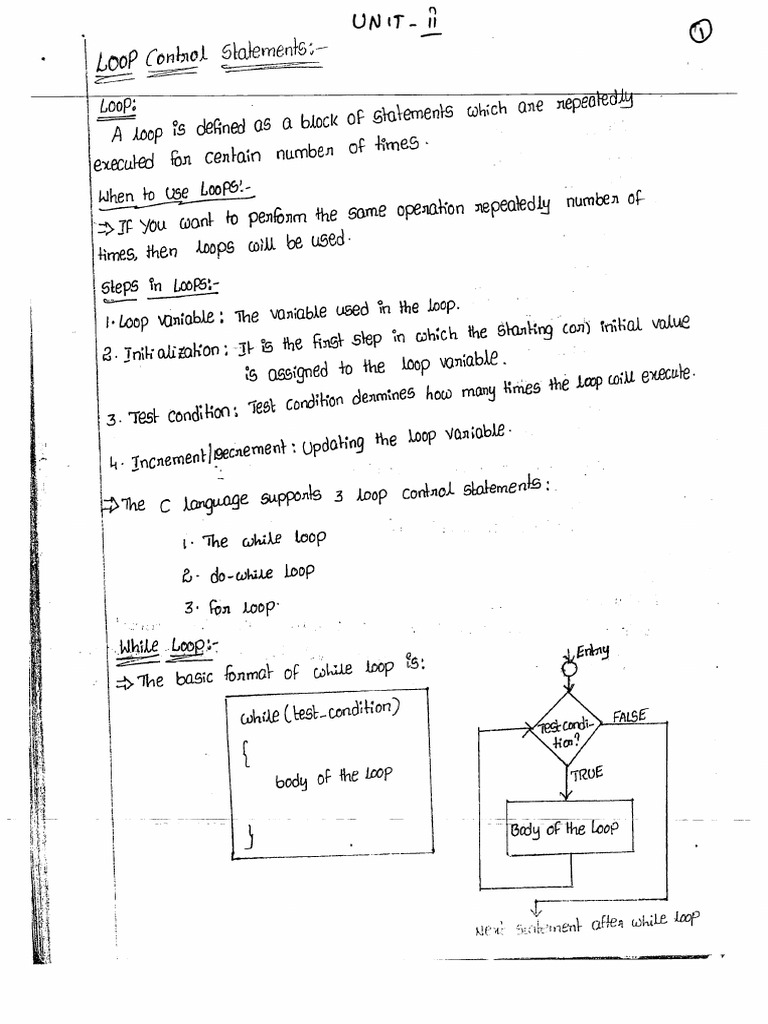 UNIT - ii
1
Loop Control Statements:-
Loop:
A loop is defined as a block of statements which are repeatedly
executed for certain number of times.
When to use Loops:-
⇒ If you want to perform the same operation repeatedly number of
times, then loops will be used.
Steps in Loops:-
1. Loop variable: The variable used in the loop.
2. Initialization: It is the first step in which the starting (or) initial value
is assigned to the loop variable.
3. Test Condition: Test Condition dermines how many times the loop will execute.
4. Increment/Decrement: Updating the loop variable.
⇒ The C language supports 3 loop control statements:
1. The while loop
2. do-while loop
3. for loop.
While Loop:-
⇒ The basic format of while loop is:
while(test_condition)
{
body of the loop
}
Entry
Test condi-
tion?
FALSE
TRUE
Body of the Loop
Next statement after while loop